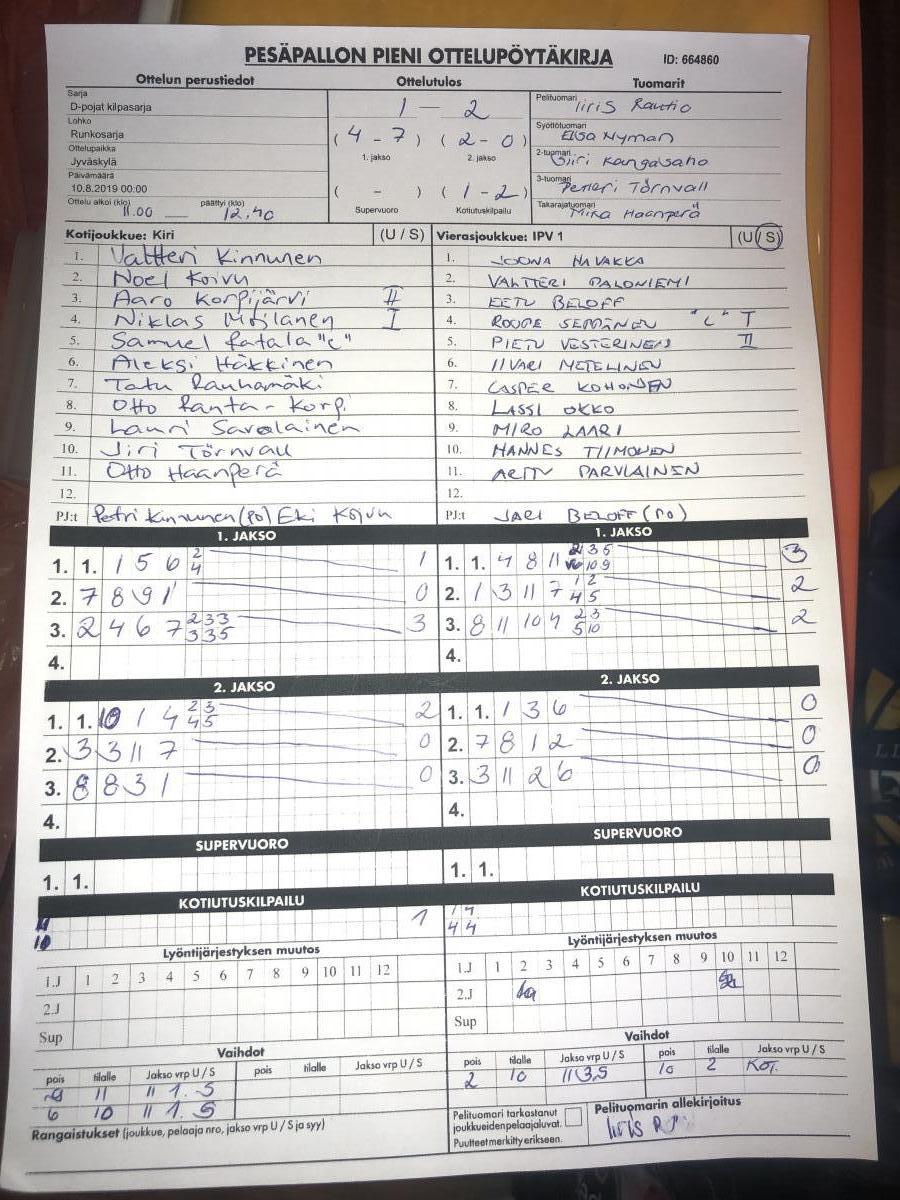 PESÄPALLON PIENI OTTELUPÖYTÄKIRJA ID: 664860
Ottelun perustiedot Ottelutulos Tuomarit
Sarja
D-pojat kilpasarja
Lohko
Runkosarja
Ottelupaikka
Jyväskylä
Päivämäärä
10.8.2019 00:00
Ottelu alkoi (klo) päättyi (klo)
11.00 12.40
1 — 2
( 4 - 7 ) ( 2 - 0 )
1. jakso 2. jakso
( - ) ( 1 - 2 )
Supervuoro Kotiutuskilpailu
Pelituomari Iiris Rautio
Syöttötuomari Elsa Nyman
2-tuomari Siiri Kangasaho
3-tuomari Petteri Törnvall
Takarajatuomari Mika Haanperä
Kotijoukkue: Kiri (U / S)
1. Valtteri Kinnunen
2. Noel Koivu
3. Aaro Korpijärvi II
4. Niklas Moilanen I
5. Samuel Ratala "C"
6. Aleksi Häkkinen
7. Tatu Rauhamäki
8. Otto Ranta-Korpi
9. Lauri Savolainen
10. Jiri Törnvall
11. Otto Haanperä
12.
PJ:t Petri Kinnunen (PO) Eki Koivu
Vierasjoukkue: IPV 1 (U / S)
1. JOONA HAVAKKA
2. VALTTERI PALONIEMI
3. EETU BELOFF
4. ROOPE SEMÄNEN "C" I
5. PIETU VESTERINEN II
6. IIVARI METELINEN
7. CASPER KOHONEN
8. LASSI OKKO
9. MIRO LAARI
10. HANNES TIIMONEN
11. ARTTU PARVIAINEN
12.
PJ:t JARI BELOFF (PO)
1. JAKSO
1. 1. 1 5 6 2 4 1
2. 7 8 9 1 0
3. 2 4 6 7 2 3 3 3 3 5 3
4.
1. JAKSO
1. 1. 4 8 11 2 3 5 10 9 3
2. 1 3 11 7 1 2 4 5 2
3. 8 11 10 4 2 3 5 10 2
4.
2. JAKSO
1. 1. 10 1 4 2 3 4 5 2
2. 3 3 11 7 0
3. 8 8 3 1 0
4.
2. JAKSO
1. 1. 1 3 6 0
2. 7 8 1 2 0
3. 3 11 2 6 0
4.
SUPERVUORO
1. 1.
SUPERVUORO
1. 1.
KOTIUTUSKILPAILU
10 1
KOTIUTUSKILPAILU
4 4
Lyöntijärjestyksen muutos
1.J 1 2 3 4 5 6 7 8 9 10 11 12
2.J
Sup
Lyöntijärjestyksen muutos
1.J 1 2 3 4 5 6 7 8 9 10 11 12
2.J
Sup
Vaihdot
pois tilalle Jakso vrp U / S pois tilalle Jakso vrp U / S
9 11 II 1. S
6 10 II 1. S
Vaihdot
pois tilalle Jakso vrp U / S pois tilalle Jakso vrp U / S
2 10 II 3. S 10 2 KOT.
Rangaistukset (joukkue, pelaaja nro, jakso vrp U / S ja syy)
Pelituomari tarkastanut
joukkueiden pelaajaluvat.
Puutteet merkitty erikseen.
Pelituomarin allekirjoitus
Iiris